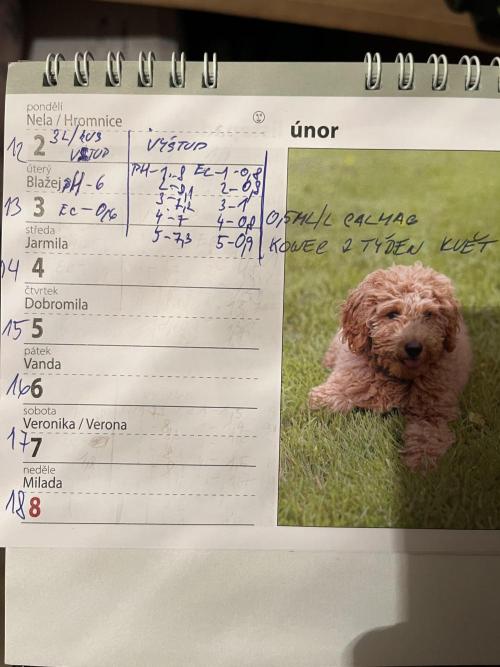 pondělí
Nela / Hromnice
únor
12 2 3L/KUS VSTUP
VÝSTUP
úterý
Blažej PH-6
PH-1-8 EC-1-0,8
2-8,1 2-0,9
13 3 EC-0,6
3-7,2 3-1
4-7 4-0,8
0,5ML/L CALMAG
středa
Jarmila
5-7,3 5-0,9
KONEC 2 TÝDEN KVĚT
14 4
čtvrtek
Dobromila
15 5
pátek
Vanda
16 6
sobota
Veronika / Verona
17 7
neděle
Milada
18 8